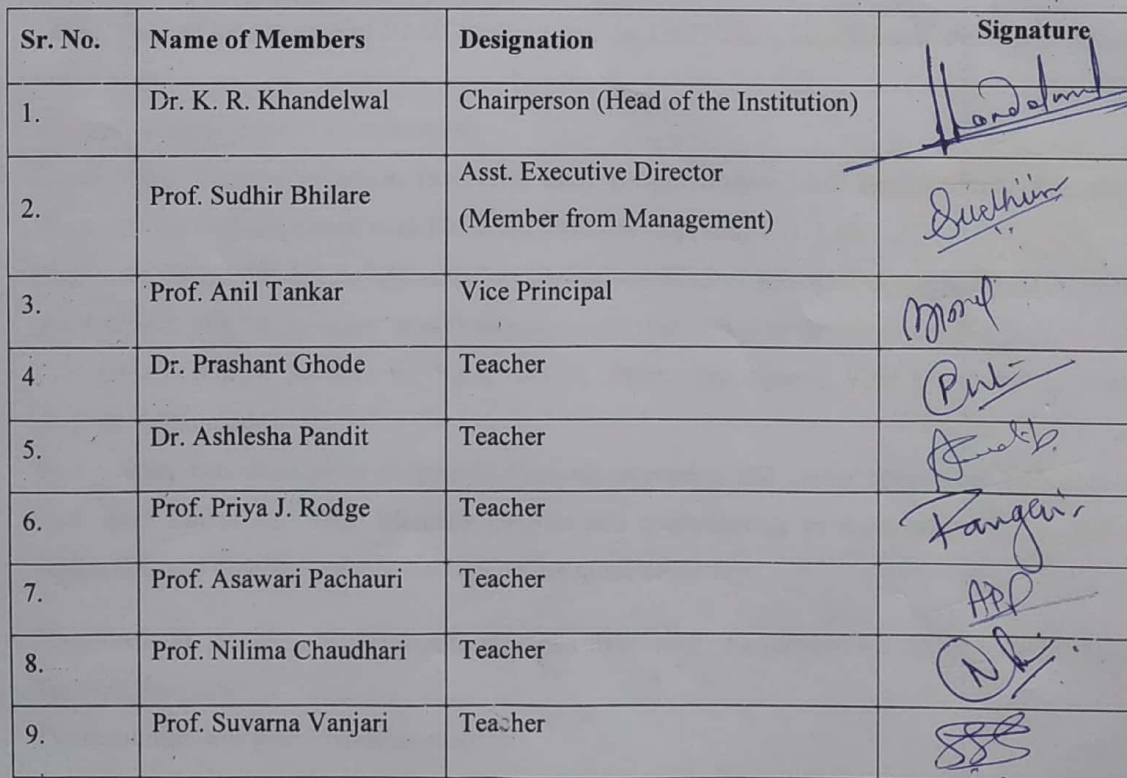 Sr. No. Name of Members Designation Signature
1. Dr. K. R. Khandelwal Chairperson (Head of the Institution)
2. Prof. Sudhir Bhilare Asst. Executive Director
(Member from Management) Sudhir
3. Prof. Anil Tankar Vice Principal
4 Dr. Prashant Ghode Teacher
5. Dr. Ashlesha Pandit Teacher
6. Prof. Priya J. Rodge Teacher
7. Prof. Asawari Pachauri Teacher APP
8. Prof. Nilima Chaudhari Teacher
9. Prof. Suvarna Vanjari Teacher